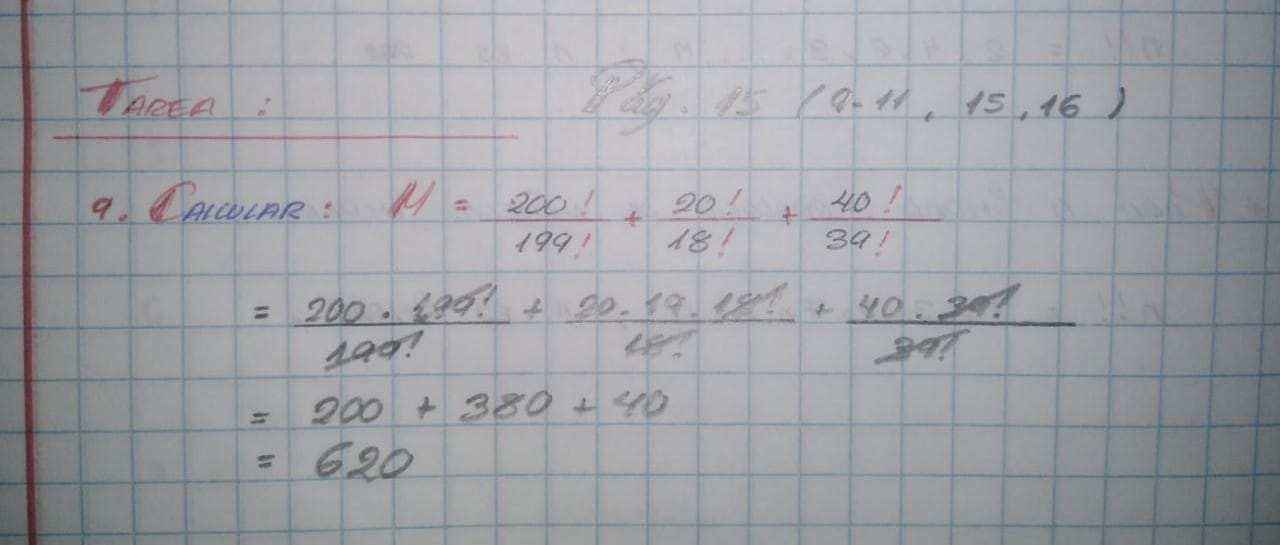 TAREA : Pág. 15 (9-11, 15, 16)
9. CALCULAR: M = 200!/199! + 20!/18! + 40!/39!
= 200 . 199!/199! + 20.19.18!/18! + 40.39!/39!
= 200 + 380 + 40
= 620